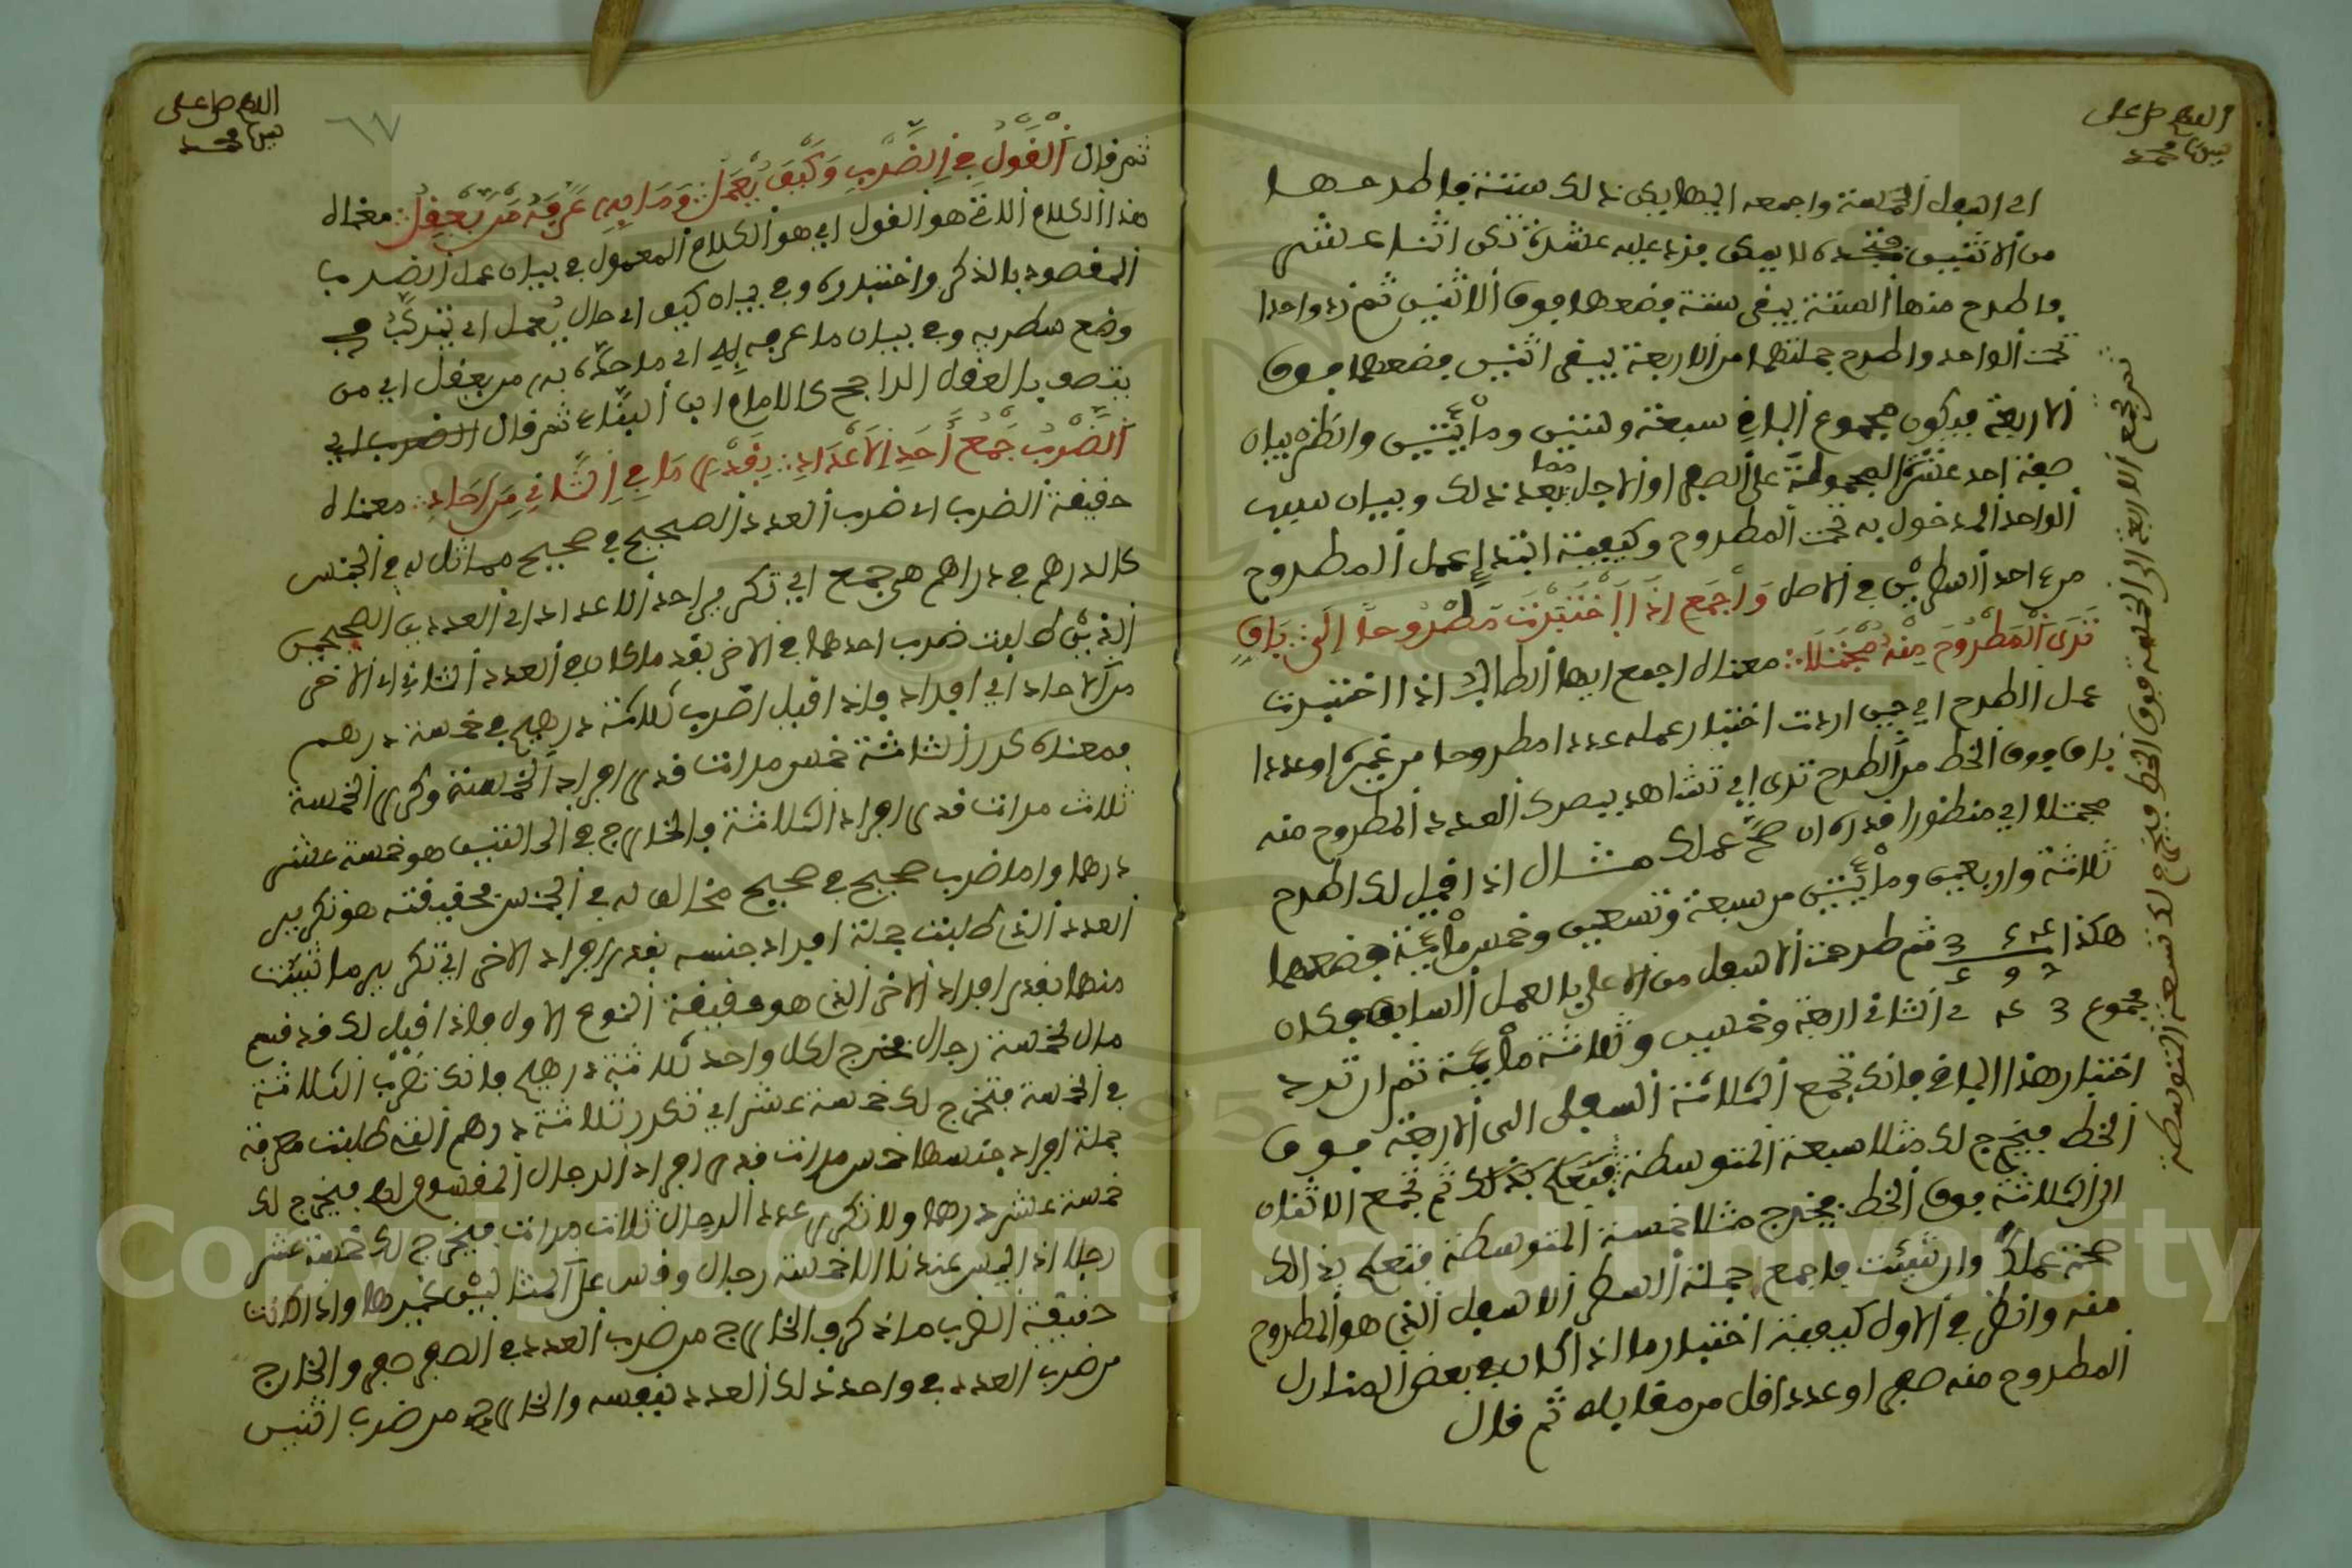 اللهم صل على
سيدنا محمد
الى اسفل الخمسة واجمعه اليها يكن ذلك ستة فاطرحها
من الاثنين فتجده لا يمكن فزد عليه عشرة تكن اثنا عشر
فاطرح منها الستة يبقى ستة فضعها فوق الاثنين ثم زد واحدا
تحت الواحد واطرح جملتهما من الاربعة يبقى اثنين فضعهما فوق
الاربعة فيكون مجموع الباقي سبعة وستين ومائتين وانظر بيان
صفة احد عشر المحمولة على الصفر او الاجل مما بعد ذلك وبيان سبب
الواحد المدخول به تحت المطروح وكيفية ابتداء عمل المطروح
من احد السطرين في الاصل واجمع اذا اختبرت مطروحا الى باق
ترى المطروح منه مجتلا معناه اجمع ايها الطالب اذا اختبرت
عمل الطرح اي حين اردت اختبار عمله عددا مطروحا من غيره او عددا
باق فوق الخط من الطرح ترى اي تشاهد ببصرك العدد المطروح منه
مجتلا اي منظورا قدره ان صح عملك مثال اذا قيل لك اطرح
ثلاثة واربعين ومائتين من سبعة وتسعين وخمس مائة فضعهما
هكذا ثم طرحت الاسفل من الاعلى بالعمل السابق فكان
مجموع في الثاني اربعة وخمسين وثلاثة مائة ثم اردت
اختبار هذا الباقي فانك تجمع الثلاثة السفلى الى الاربعة فوق
الخط فيخرج لك مثل السبعة المتوسطة فتعلم بذلك ثم تجمع الاثنان
الى الثلاثة فوق الخط فيخرج مثل الخمسة المتوسطة فتعلم بذلك
صحة عملك وان شئت فاجمع جملة السطر الاسفل الذي هو المطروح
منه وانظر في الاول كيفية اختبار ما اذا كان في بعض المنازل
المطروح منه صفر او عدد اقل من مقابله ثم قال
ثم تجمع الاربعة الى الخمسة فوق الخط فيخرج لك تسعة المتوسطة
اللهم صل على
سيدنا محمد
٦٧
ثم قال القول في الضرب وكيف يعمل وما به عرفه من يعقل معناه
هذا الكلام الاتي هو القول اي هو الكلام المعمول في بيان عمل الضرب
المقصود بالذكر واختباره وفي بيان كيف اي حال يعمل اي يتركب في
وضع سطريه وفي بيان ما عرفه به اي ما حده به من يعقل اي من
يتصف بالعقل الراجح كالامام ابن البناء ثم قال الضرب اي
الضرب جمع احد الاعداد بقدر ما في الثاني من احاد معناه
حقيقة الضرب اي ضرب العدد الصحيح في صحيح مماثل له في الجنس
كالدرهم في دراهم هي جمع اي تكرير احد الاعداد اي العددين الصحيحين
الذين طلبت ضرب احدهما في الاخر بقدر ما كان في العدد الثاني اي الاخر
من الاحاد اي افراد فاذا قيل اضرب ثلاثة دراهم في خمسة درهم
فمعناه كرر الثلاثة خمس مرات قدر افراد الخمسة وكرر الخمسة
ثلاث مرات قدر افراد الثلاثة والخارج في الحالتين هو خمسة عشر
درهما واما ضرب صحيح في صحيح مخالف له في الجنس فحقيقته هو تكرير
العدد الذي طلبت جملة افراد جنسه بقدر افراد الاخر اي تكرير ما شئت
منهما بقدر افراد الاخر الذي هو حقيقة النوع الاول فاذا قيل لك قد قسم
مال لخمسة رجال فخرج لكل واحد ثلاثة دراهم فانك تضرب الثلاثة
في الخمسة فتخرج لك خمسة عشر اي تكرر ثلاثة درهم التي طلبت معرفة
جملة افراد جنسها خمس مرات قدر افراد الرجال المقسوم لهم فيخرج لك
خمسة عشر درهما ولا تكرر عدد الرجال ثلاث مرات فيخرج لك خمسة عشر
رجلا اذ ليس عندنا الا خمسة رجال وقس على المثالين غيرها واذا كانت
حقيقة الضرب ما ذكر فالخارج من ضرب العدد في الصفر صفر والخارج
من ضرب العدد في واحد ذلك العدد بنفسه والخارج من ضرب اثنين
Copyright © King Saud University